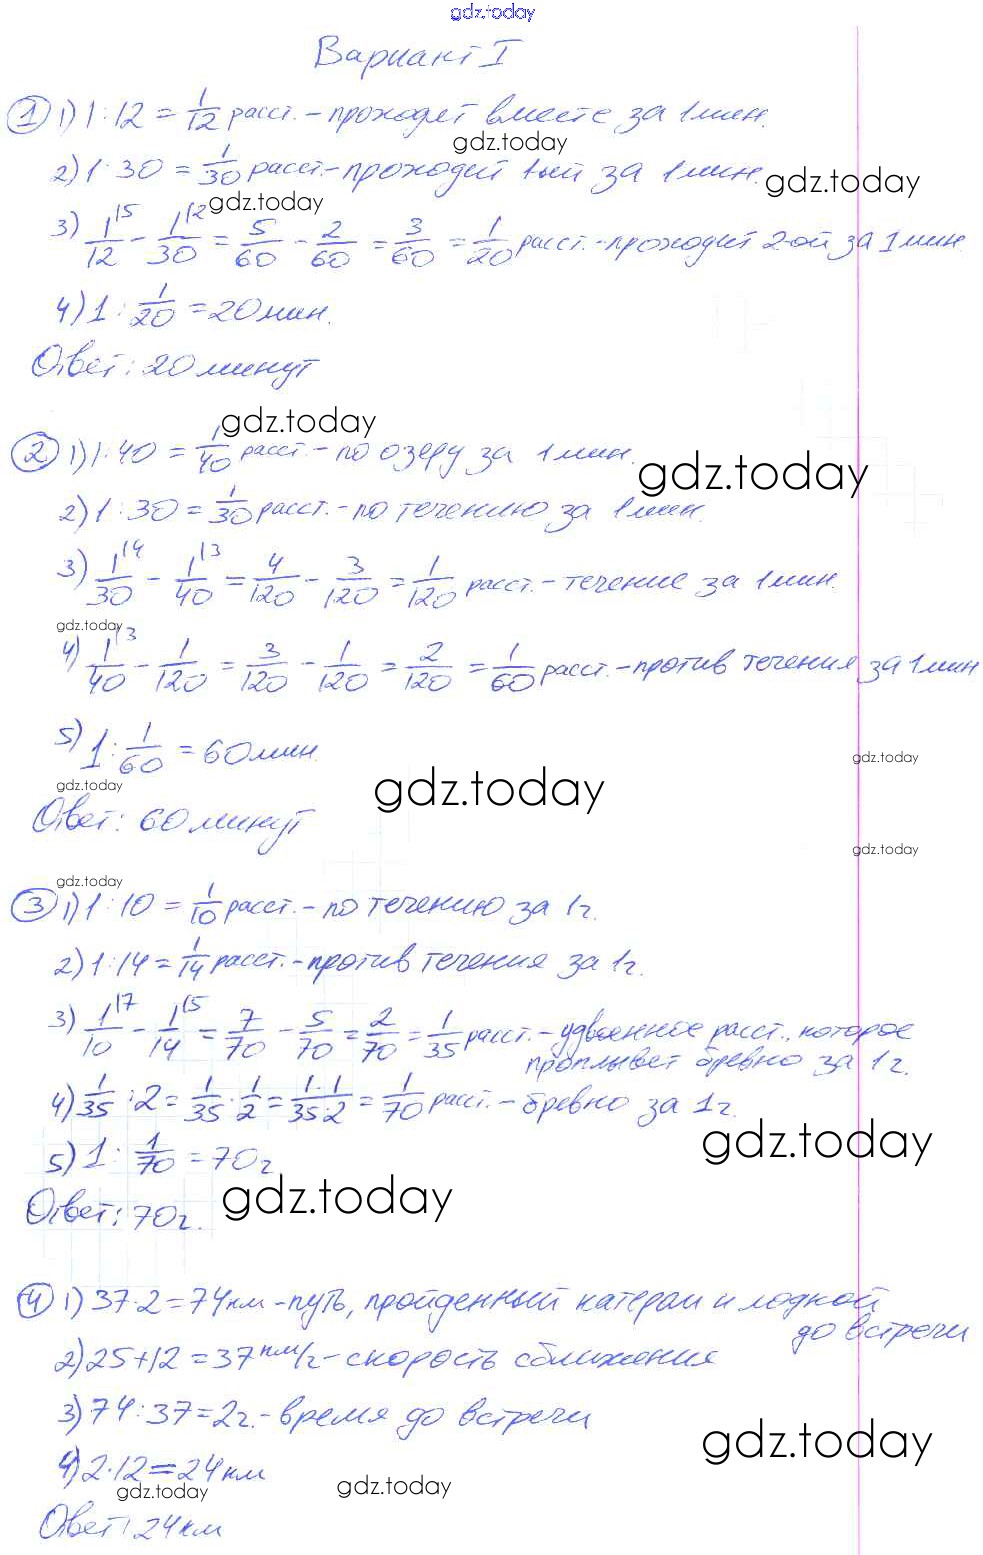 gdz.today
Вариант I
① 1) 1:12 = 1/12 расст. - проходят вместе за 1 мин.
gdz.today
2) 1:30 = 1/30 расст. - проходит 1ый за 1 мин.
gdz.today
gdz.today
3) 1/12 |5 - 1/30 |2 = 5/60 - 2/60 = 3/60 = 1/20 расст. - проходит 2-ой за 1 мин.
4) 1 : 1/20 = 20 мин.
Ответ: 20 минут
gdz.today
② 1) 1:40 = 1/40 расст. - по озеру за 1 мин.
gdz.today
2) 1:30 = 1/30 расст. - по течению за 1 мин.
3) 1/30 |4 - 1/40 |3 = 4/120 - 3/120 = 1/120 расст. - течение за 1 мин.
gdz.today
4) 1/40 |3 - 1/120 = 3/120 - 1/120 = 2/120 = 1/60 расст. - против течения за 1 мин
5) 1 : 1/60 = 60 мин.
gdz.today
gdz.today
gdz.today
Ответ: 60 минут
gdz.today
gdz.today
③ 1) 1:10 = 1/10 расст. - по течению за 1г.
2) 1:14 = 1/14 расст. - против течения за 1г.
3) 1/10 |7 - 1/14 |5 = 7/70 - 5/70 = 2/70 = 1/35 расст. - удвоенное расст., которое
проплывет бревно за 1г.
4) 1/35 : 2 = 1/35 · 1/2 = 1·1/35·2 = 1/70 расст. - бревно за 1г.
gdz.today
5) 1 : 1/70 = 70г
gdz.today
Ответ: 70г.
④ 1) 37·2 = 74 км - путь, пройденный катером и лодкой
до встречи
2) 25+12 = 37 км/г - скорость сближения
3) 74:37 = 2г. - время до встречи
gdz.today
4) 2·12 = 24 км
gdz.today
gdz.today
Ответ: 24 км